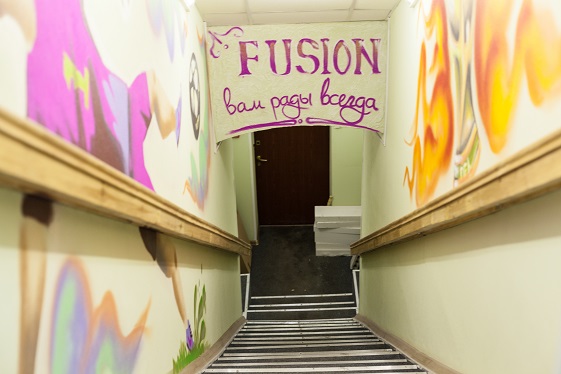 FUSION
вам рады всегда